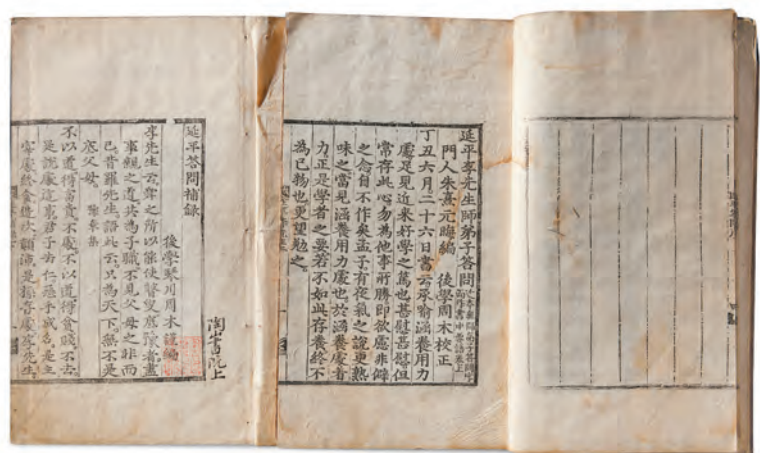 延平李先生師弟子答問
門人朱熹元晦編 後學周木校正
丁丑六月二十六日書云承喻涵養用力
處足見近來好學之篤也甚慰甚慰但
常存此心勿為他事所勝即欲慮非僻
之念自不作矣孟子有夜氣之說更熟
味之當見涵養用力處也於涵養處著
力正是學者之要若不如此存養終不
為已物也更望勉之
陶書院上
延平答問補録
後學琴川周木謹編
李先生云舜之所以能使瞽瞍底豫者盡
事親之道共為子職不見父母之非而
已昔羅先生語此云只為天下無不是
底父母
不以道得富貴不處不以道得貧賤不去
是說處這事君子去仁惡乎成名是主
宰處終食造次顛沛是操存處李先生